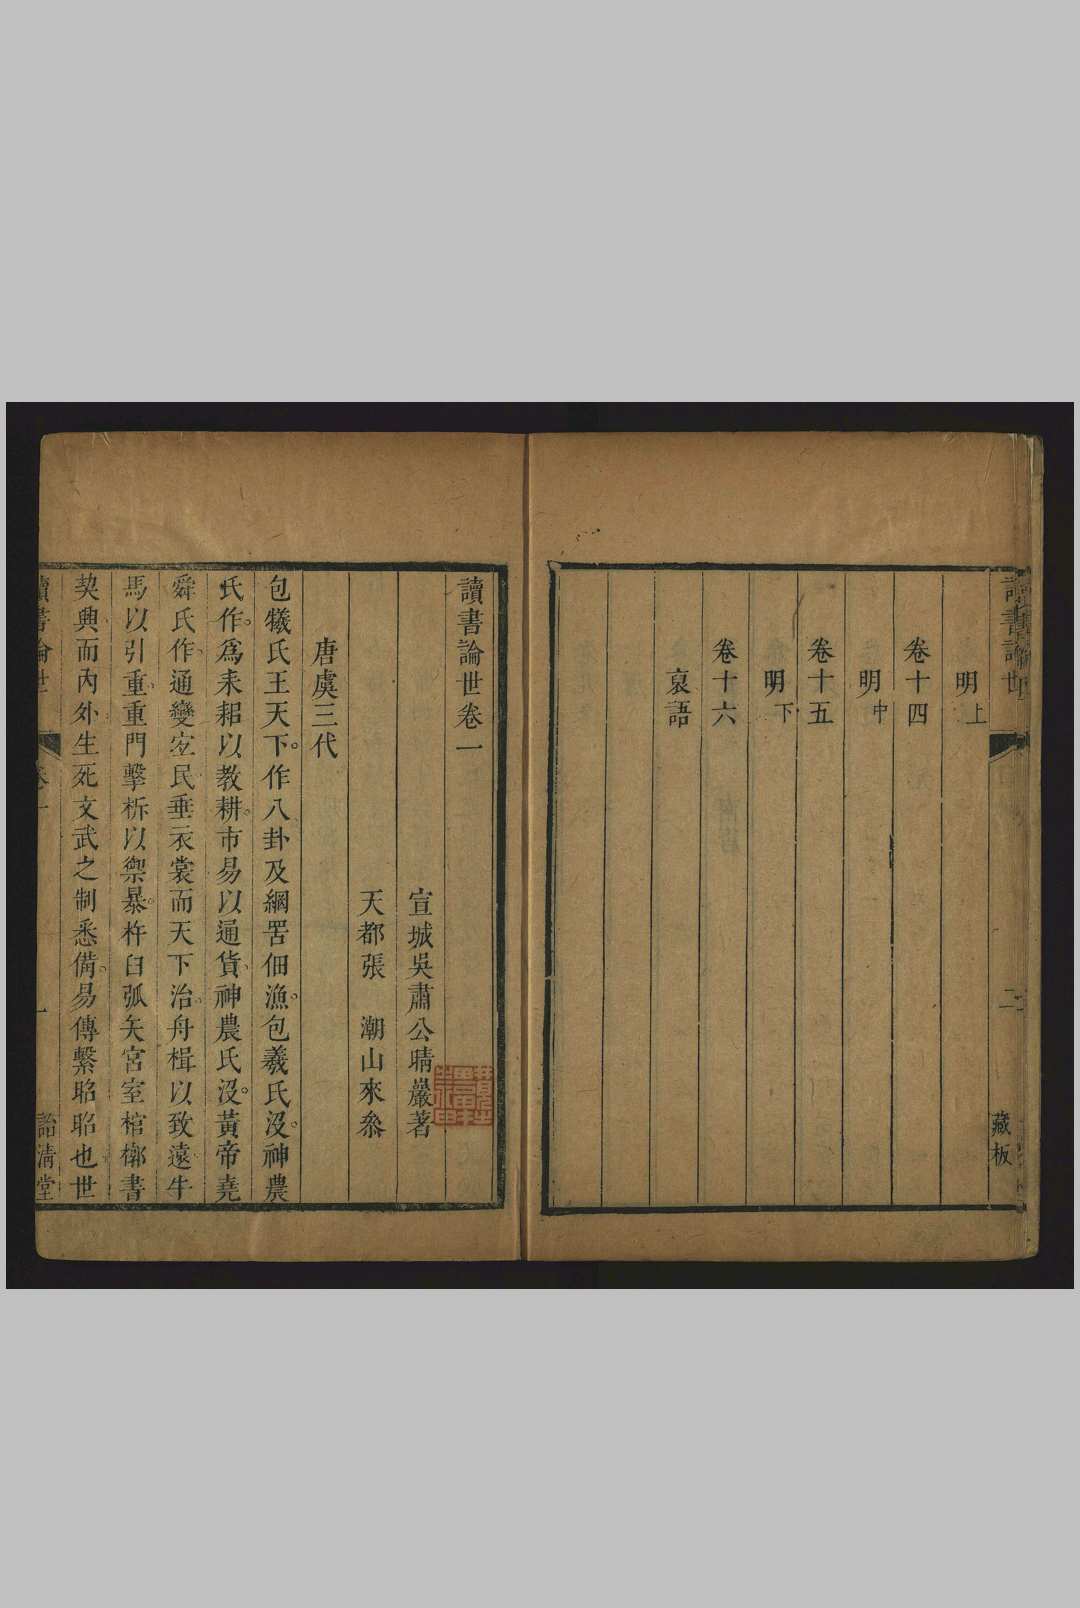 讀書論世
二
藏板
明上
卷十四
明中
卷十五
明下
卷十六
哀語
讀書論世卷一
宣城吳肅公晴巖著
天都張 潮山來叅
唐虞三代
包犧氏王天下。作八卦及網罟佃漁。包羲氏沒。神農
氏作。爲耒耜以教耕。市易以通貨。神農氏沒。黃帝堯
舜氏作。通變宐民垂衣裳而天下治。舟楫以致遠。牛
馬以引重。重門擊柝以禦暴。杵臼弧矢宮室棺槨書
契興而內外生死文武之制悉備。易傳繫昭昭也世
讀書論世
卷一
一
詒清堂